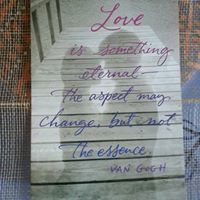 Love
is something
eternal -
the aspect may
change, but not
the essence.
VAN GOGH